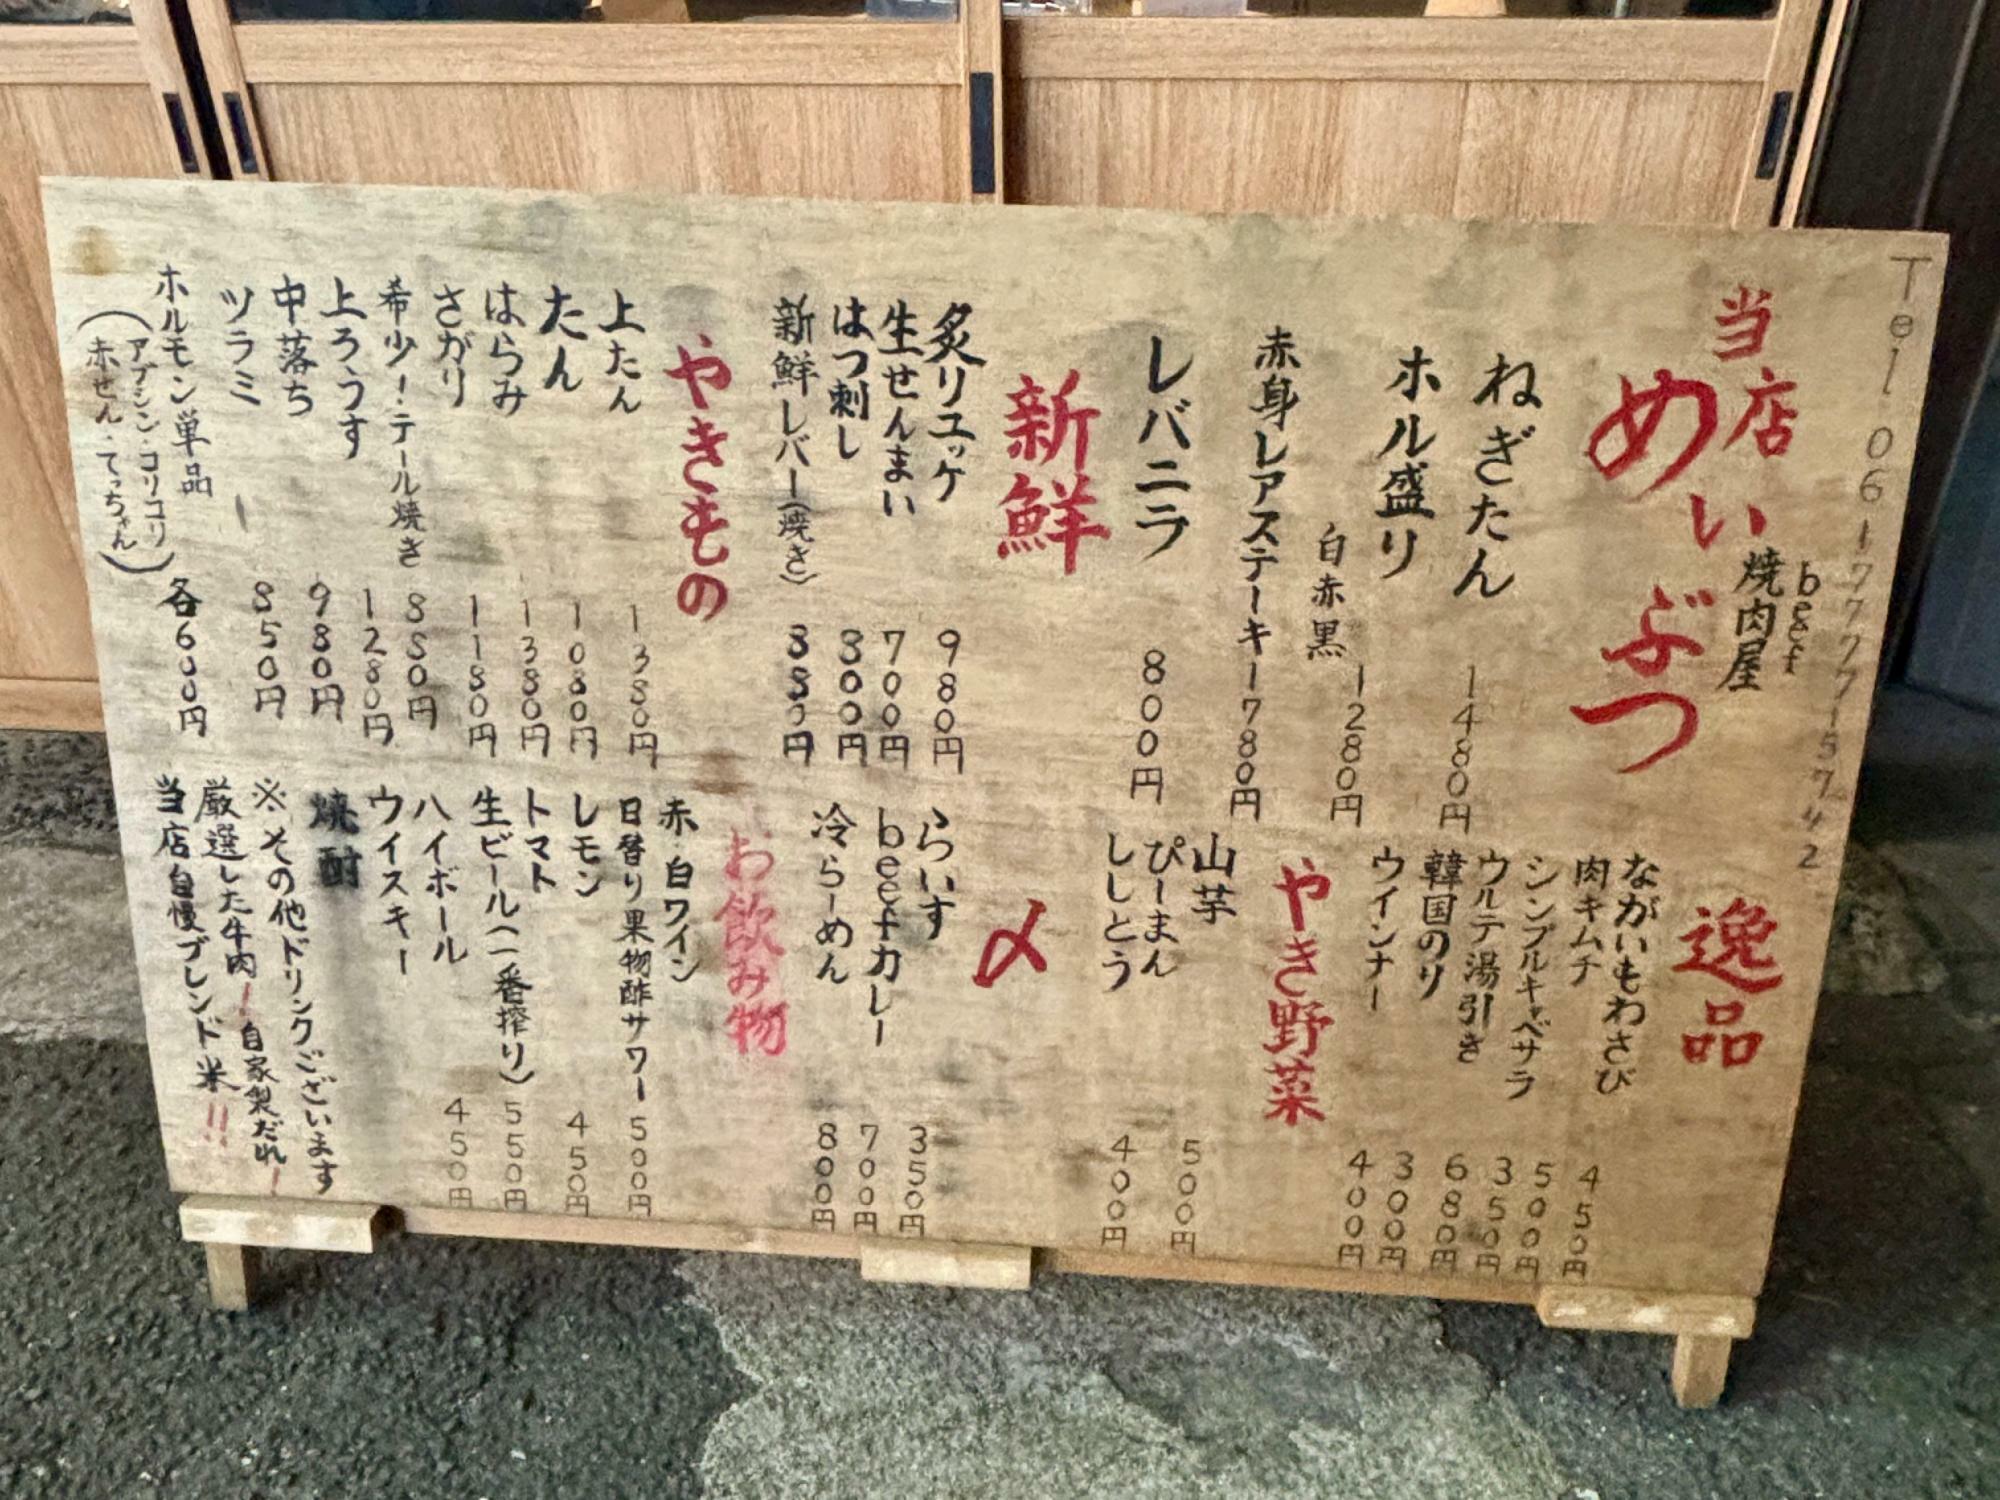 Tel 06-7777-5742
beef
焼肉屋
当店
めいぶつ
ねぎたん 1480円
ホル盛り 白 赤 黒 1280円
赤身レアステーキ 1780円
レバニラ 800円
新鮮
炙りユッケ 980円
生せんまい 700円
はつ刺し 800円
新鮮レバー(焼き) 880円
やきもの
上たん 1380円
たん 1080円
はらみ 1380円
さがり 1180円
希少!テール焼き 880円
上ろうす 1280円
中落ち 980円
ツラミ 850円
ホルモン単品 各600円
(アブシン・コリコリ
赤せん・てっちゃん)
逸品
ながいもわさび 450円
肉キムチ 500円
シンプルキャベサラ 350円
ウルテ湯引き 680円
韓国のり 300円
ウインナー 400円
やき野菜
山芋 500円
ぴーまん
ししとう 400円
〆
らいす 350円
beefカレー 700円
冷らーめん 800円
お飲み物
赤・白ワイン
日替り果物酢サワー 500円
レモン 450円
トマト
生ビール(一番搾り) 550円
ハイボール 450円
ウイスキー
焼酎
※その他ドリンクございます
厳選した牛肉!自家製だれ!
当店自慢ブレンド米!!